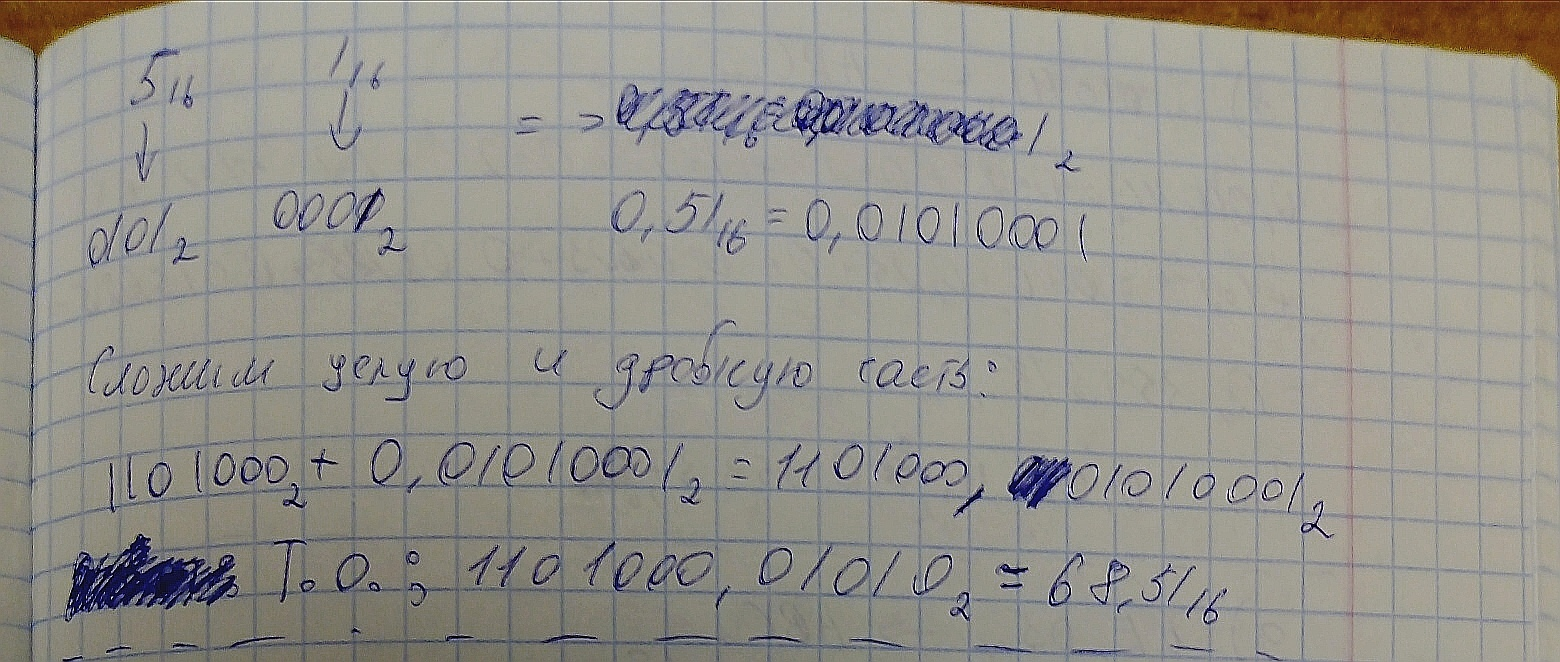 5₁₆ 1₁₆
=> 1₂
0101₂ 0001₂ 0,51₁₆ = 0,01010001
Сложим целую и дробную часть:
1101000₂ + 0,01010001₂ = 1101000,01010001₂
Т.О.: 1101000,01010₂ = 68,51₁₆